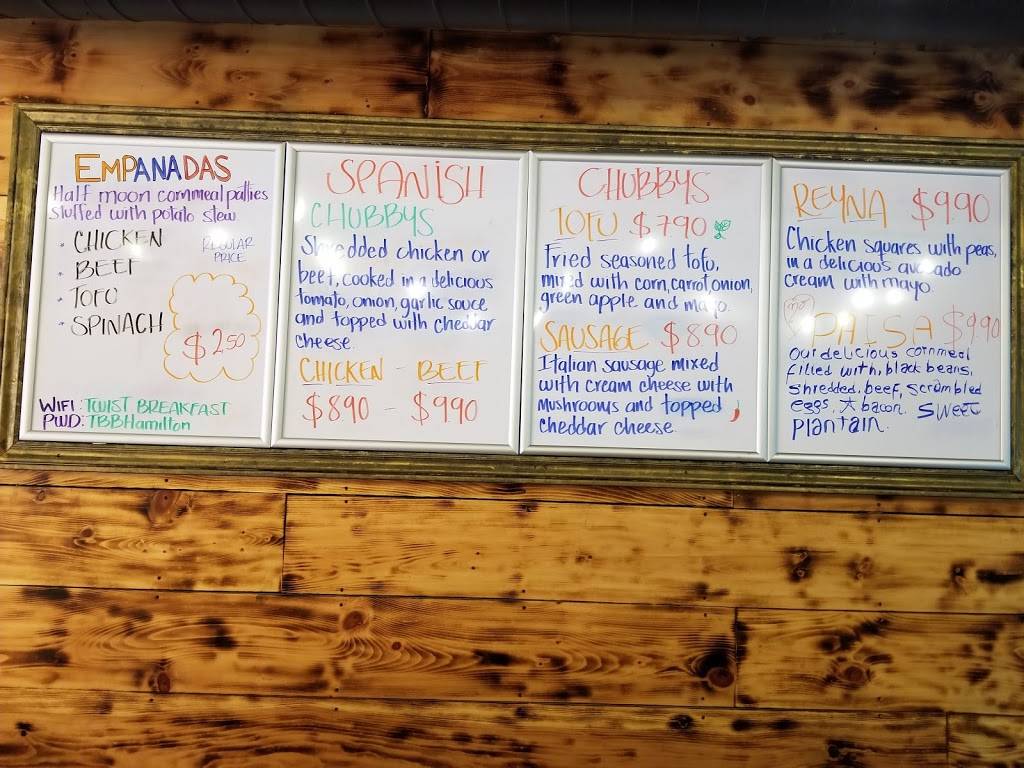 EMPANADAS
Half moon cornmeal patties
stuffed with potato stew.
· CHICKEN
REGULAR
PRICE
· BEEF
· TOFO
· SPINACH
$2.50
WIFI: TWIST BREAKFAST
PWD: TBBHamilton
SPANISH
CHUBBYS
Shredded chicken or
beef, cooked in a delicious
tomato, onion, garlic sauce
and topped with cheddar
cheese.
CHICKEN - BEEF
$8.90 - $9.90
CHUBBYS
TOFU $7.90
Fried seasoned tofo,
mixed with corn, carrot, onion,
green apple and mayo.
SAUSAGE $8.90
Italian sausage mixed
with cream cheese with
mushrooms and topped
cheddar cheese.
REYNA $9.90
Chicken squares with peas,
in a delicious avocado
cream with mayo.
PAISA $9.90
Our delicious cornmeal
filled with, black beans,
shredded, beef, scrambled
eggs, bacon. sweet
plantain.